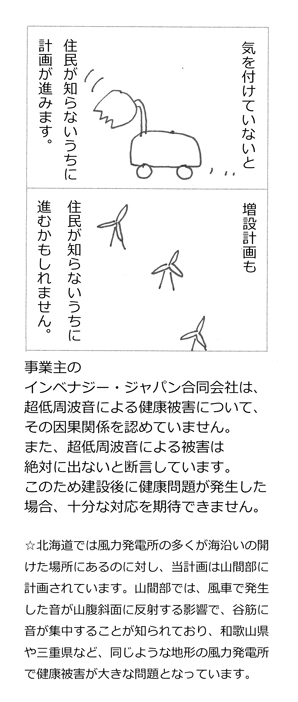 気を付けていないと
住民が知らないうちに
計画が進みます。
増設計画も
住民が知らないうちに
進むかもしれません。
事業主の
インベナジー・ジャパン合同会社は、
超低周波音による健康被害について、
その因果関係を認めていません。
また、超低周波音による被害は
絶対に出ないと断言しています。
このため建設後に健康問題が発生した
場合、十分な対応を期待できません。
☆北海道では風力発電所の多くが海沿いの開
けた場所にあるのに対し、当計画は山間部に
計画されています。山間部では、風車で発生
した音が山腹斜面に反射する影響で、谷筋に
音が集中することが知られており、和歌山県
や三重県など、同じような地形の風力発電所
で健康被害が大きな問題となっています。